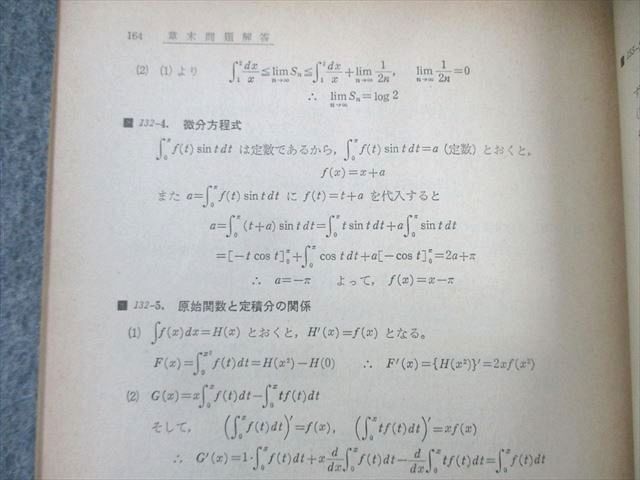 164 章末問題解答
(2) (1)より ∫₁² dx/x ≦ lim_{n→∞} Sₙ ≦ ∫₁² dx/x + lim_{n→∞} 1/2n, lim_{n→∞} 1/2n = 0
∴ lim_{n→∞} Sₙ = log 2
132-4. 微分方程式
∫₀^π f(t) sin t dt は定数であるから, ∫₀^π f(t) sin t dt = a (定数) とおくと,
f(x)=x+a
また a=∫₀^π f(t) sin t dt に f(t)=t+a を代入すると
a=∫₀^π (t+a) sin t dt=∫₀^π t sin t dt+a∫₀^π sin t dt
=[-t cos t]₀^π+∫₀^π cos t dt+a[-cos t]₀^π=2a+π
∴ a=-π よって, f(x)=x-π
132-5. 原始関数と定積分の関係
(1) ∫f(x)dx=H(x) とおくと, H'(x)=f(x) となる。
F(x)=∫₀^{x²} f(t)dt=H(x²)-H(0) ∴ F'(x)={H(x²)}'=2xf(x²)
(2) G(x)=x∫₀^x f(t)dt-∫₀^x tf(t)dt
そして, (∫₀^x f(t)dt)'=f(x), (∫₀^x tf(t)dt)'=xf(x)
∴ G'(x)=1·∫₀^x f(t)dt+x d/dx ∫₀^x f(t)dt- d/dx ∫₀^x tf(t)dt=∫₀^x f(t)dt